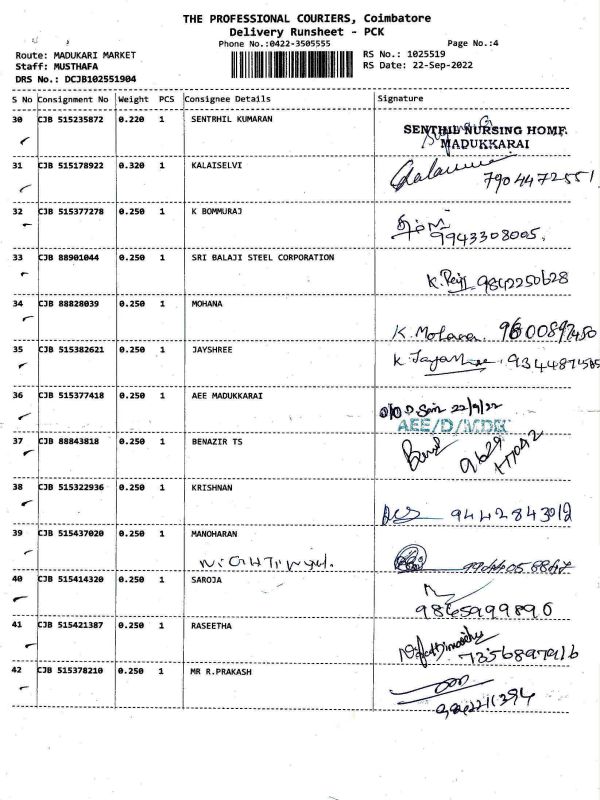 THE PROFESSIONAL COURIERS, Coimbatore
Delivery Runsheet - PCK
Phone No.:0422-3505555 Page No.:4
Route: MADUKARI MARKET RS No.: 1025519
Staff: MUSTHAFA RS Date: 22-Sep-2022
DRS No.: DCJB102551904
S No Consignment No Weight PCS Consignee Details Signature
30 CJB 515235872 0.220 1 SENTRHIL KUMARAN
SENTHIL NURSING HOME
MADUKKARAI
31 CJB 515178922 0.320 1 KALAISELVI
7904472551
32 CJB 515377278 0.250 1 K BOMMURAJ
9943308005.
33 CJB 88901044 0.250 1 SRI BALAJI STEEL CORPORATION
K. 9842250628
34 CJB 88828039 0.250 1 MOHANA
K. Mohana.
35 CJB 515382621 0.250 1 JAYSHREE
K.
36 CJB 515377418 0.250 1 AEE MADUKKARAI
22/9/22
AEE/D/MDR
37 CJB 88843818 0.250 1 BENAZIR TS
38 CJB 515322936 0.250 1 KRISHNAN
39 CJB 515437020 0.250 1 MANOHARAN
40 CJB 515414320 0.250 1 SAROJA
9865999890
41 CJB 515421387 0.250 1 RASEETHA
7356897916
42 CJB 515378210 0.250 1 MR R.PRAKASH